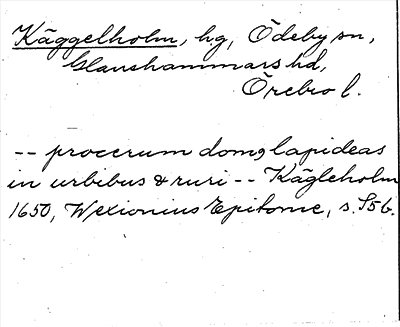 Käggelholm, hg, Ödeby sn,
Glanshammars hd,
Örebro l.
-- procerum domꝯ lapideas
in urbibus & ruri -- Kägleholm
1650, Wexionius Epitome, s. S5b.